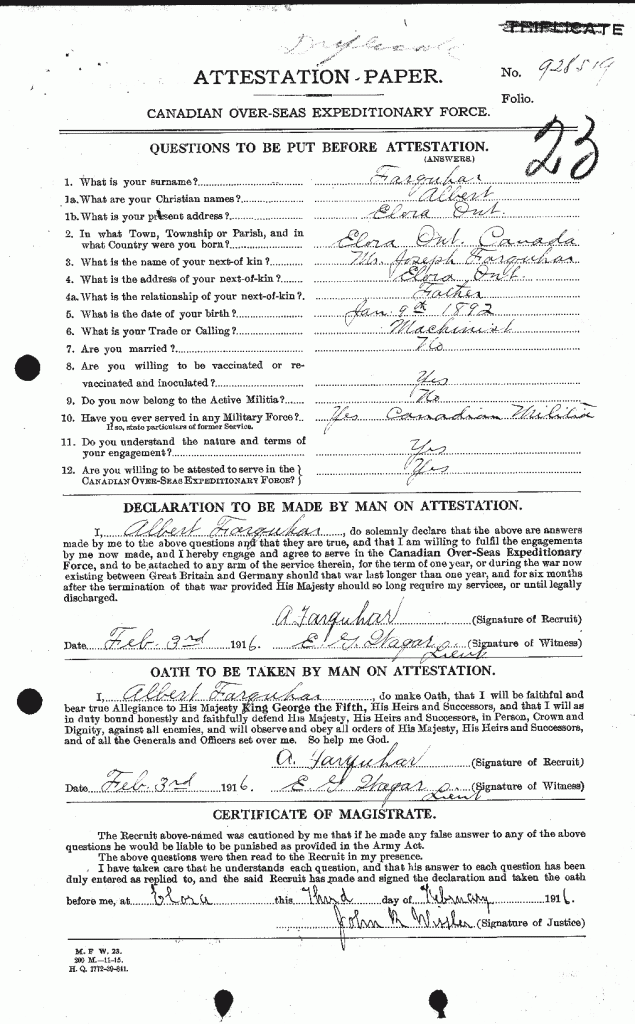 TRIPLICATE
ATTESTATION PAPER.
No. 928519
Folio.
CANADIAN OVER-SEAS EXPEDITIONARY FORCE.
23
QUESTIONS TO BE PUT BEFORE ATTESTATION.
(ANSWERS.)
1. What is your surname? Farquhar
1a. What are your Christian names? Albert
1b. What is your present address? Elora Ont.
2. In what Town, Township or Parish, and in
what Country were you born? Elora Ont. Canada
3. What is the name of your next-of kin? Mr. Joseph Farquhar
4. What is the address of your next-of-kin? Elora Ont.
4a. What is the relationship of your next-of-kin? Father
5. What is the date of your birth? Jan 9th 1892
6. What is your Trade or Calling? Machinist
7. Are you married? No
8. Are you willing to be vaccinated or re-
vaccinated and inoculated? Yes
9. Do you now belong to the Active Militia? No
10. Have you ever served in any Military Force? Yes Canadian Militia
If so, state particulars of former Service.
11. Do you understand the nature and terms of
your engagement? Yes
12. Are you willing to be attested to serve in the
CANADIAN OVER-SEAS EXPEDITIONARY FORCE? Yes
DECLARATION TO BE MADE BY MAN ON ATTESTATION.
I, Albert Farquhar, do solemnly declare that the above are answers
made by me to the above questions and that they are true, and that I am willing to fulfil the engagements
by me now made, and I hereby engage and agree to serve in the Canadian Over-Seas Expeditionary
Force, and to be attached to any arm of the service therein, for the term of one year, or during the war now
existing between Great Britain and Germany should that war last longer than one year, and for six months
after the termination of that war provided His Majesty should so long require my services, or until legally
discharged.
A. Farquhar (Signature of Recruit)
Date Feb. 3rd 1916. E G Wagar Lieut (Signature of Witness)
OATH TO BE TAKEN BY MAN ON ATTESTATION.
I, Albert Farquhar, do make Oath, that I will be faithful and
bear true Allegiance to His Majesty King George the Fifth, His Heirs and Successors, and that I will as
in duty bound honestly and faithfully defend His Majesty, His Heirs and Successors, in Person, Crown and
Dignity, against all enemies, and will observe and obey all orders of His Majesty, His Heirs and Successors,
and of all the Generals and Officers set over me. So help me God.
A. Farquhar (Signature of Recruit)
Date Feb. 3rd 1916. E G Wagar Lieut (Signature of Witness)
CERTIFICATE OF MAGISTRATE.
The Recruit above-named was cautioned by me that if he made any false answer to any of the above
questions he would be liable to be punished as provided in the Army Act.
The above questions were then read to the Recruit in my presence.
I have taken care that he understands each question, and that his answer to each question has been
duly entered as replied to, and the said Recruit has made and signed the declaration and taken the oath
before me, at Elora this Third day of February 1916.
John R (Signature of Justice)
M. F. W. 23.
200 M.—11-15.
H. Q. 1772-39-841.